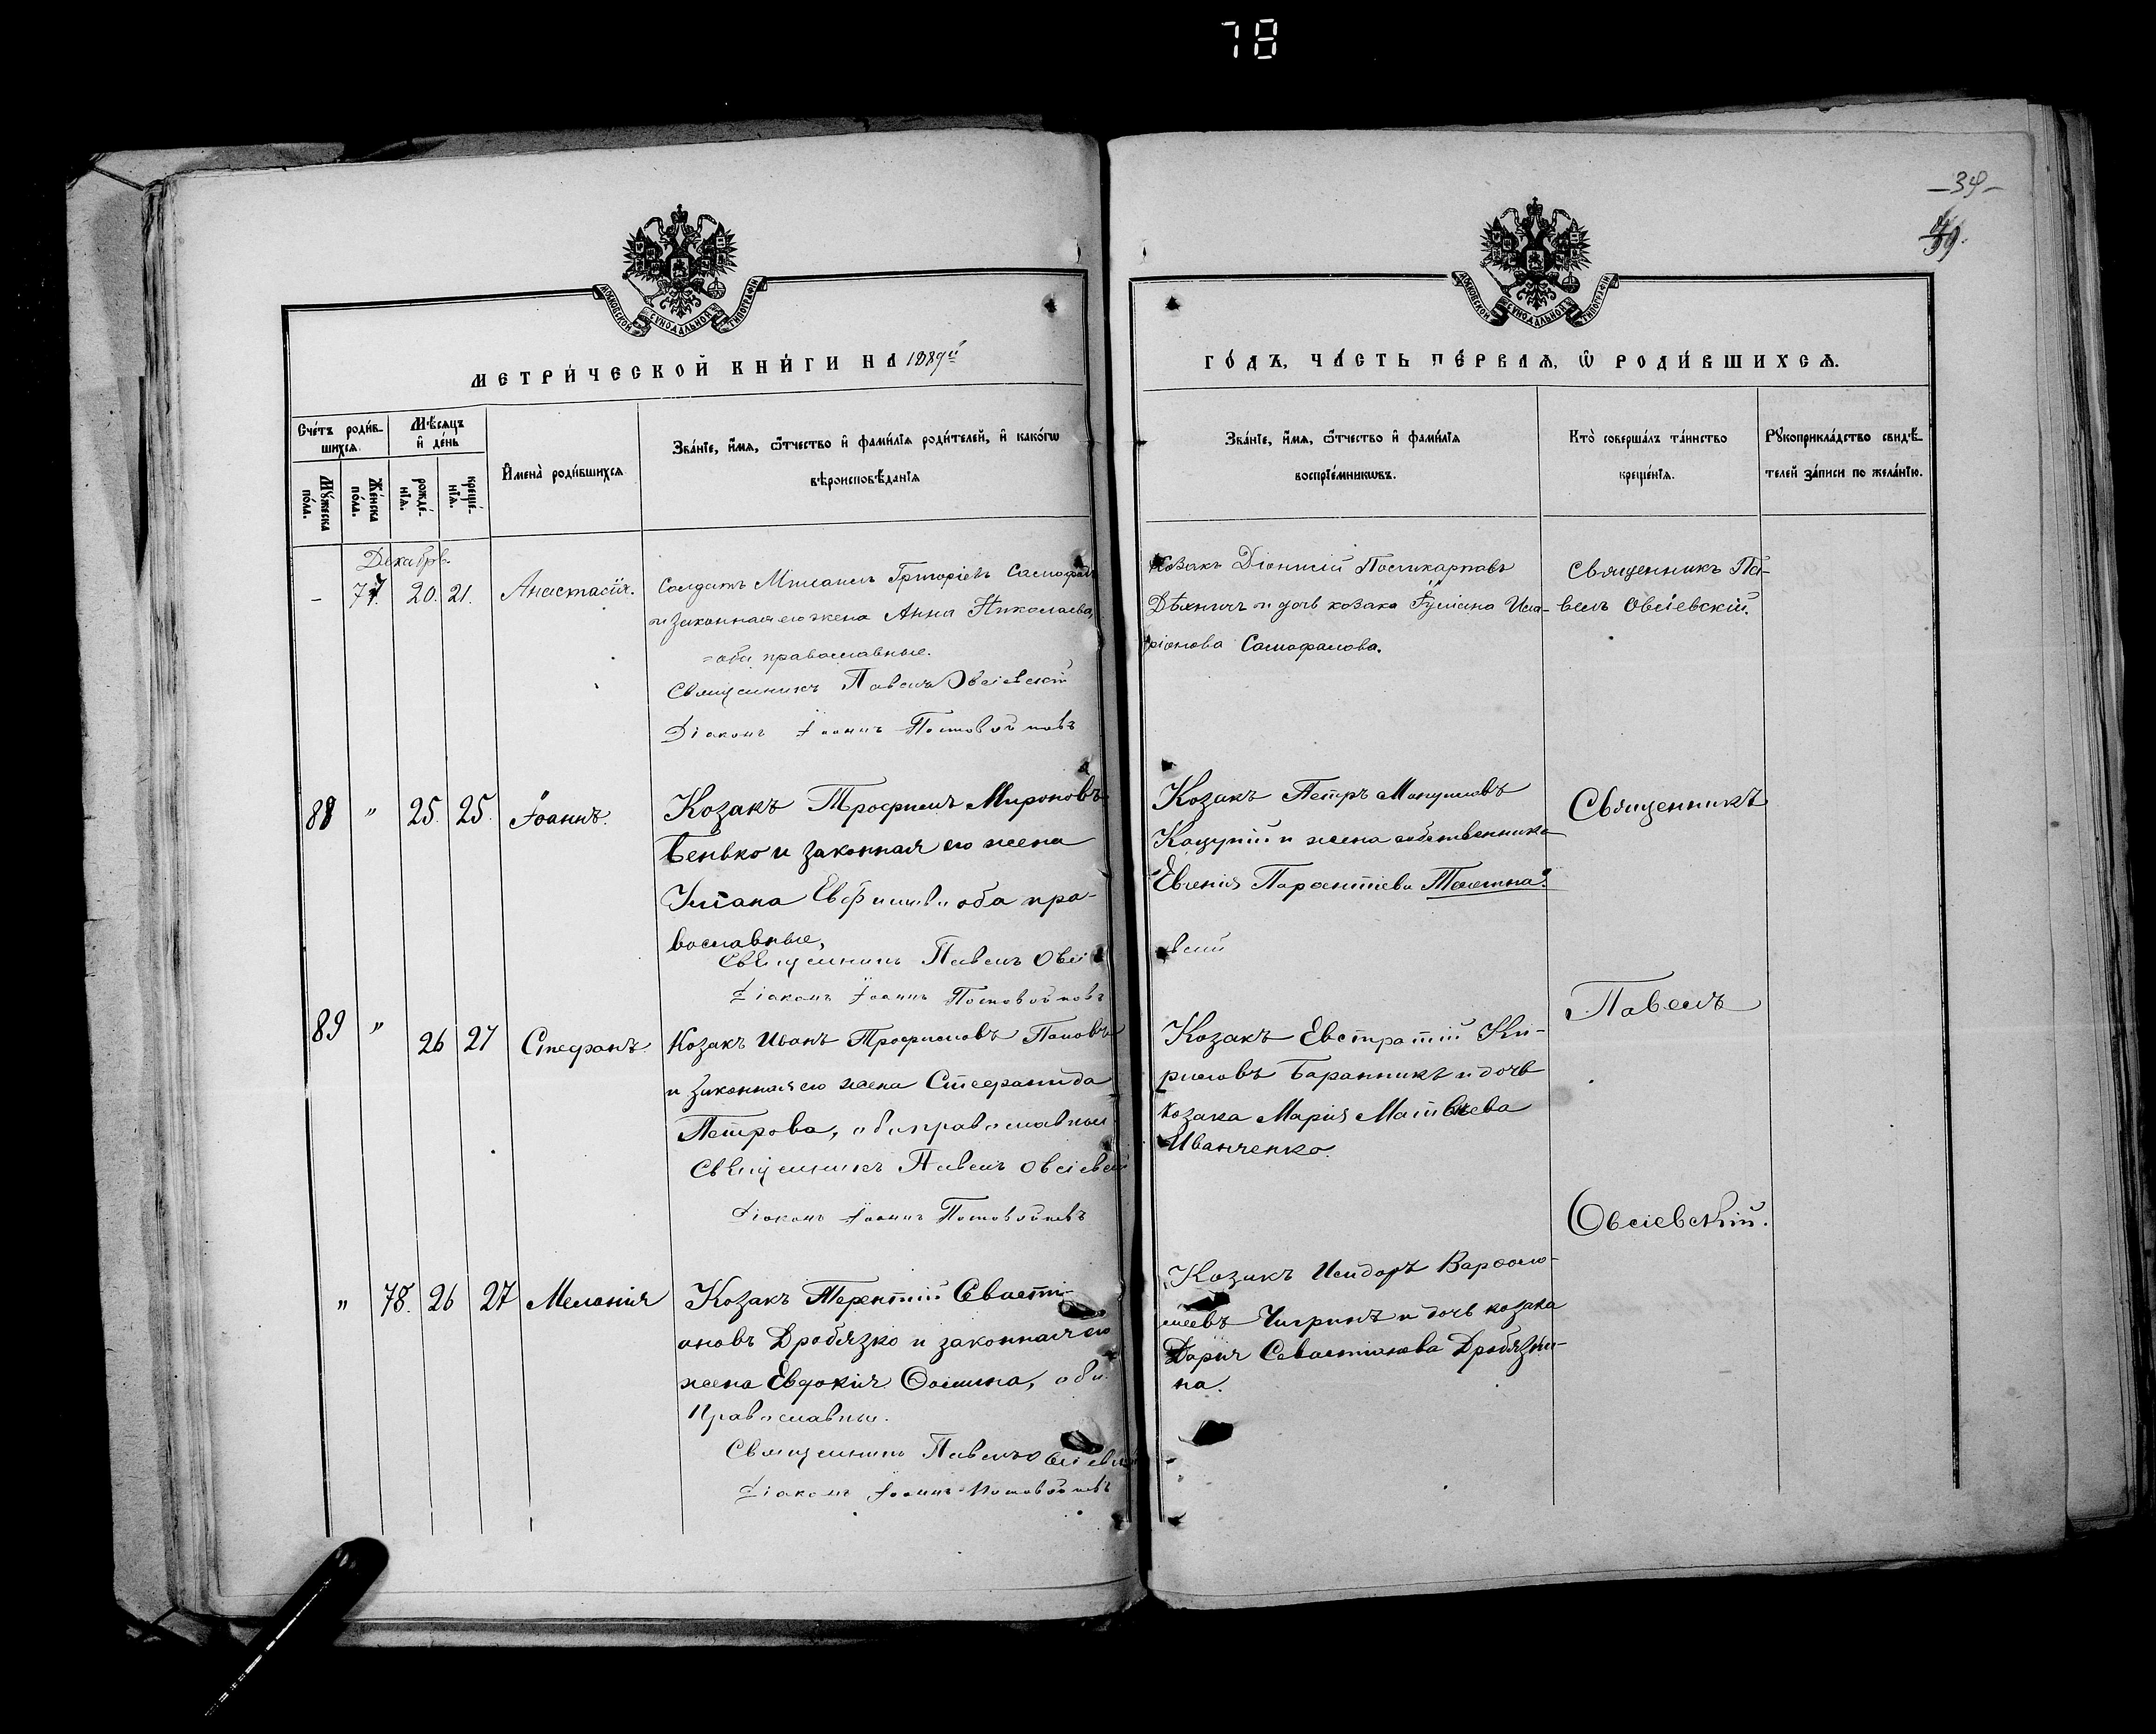 78
-39-
39.
МОСКОВСКОЙ СѴНОДАЛЬНОЙ ТИПОГРАФІИ
МОСКОВСКОЙ СѴНОДАЛЬНОЙ ТИПОГРАФІИ
МЕТРИ́ЧЕСКОЙ КНИ́ГИ НА 1889й
ГО́ДЪ, ЧА́СТЬ ПЕ́РВАЯ, Ѿ РОДИ́ВШИХСѦ.
Сче́тъ роди́в-
шихсѧ.
Мꙋ́жеска по́ла.
Же́нска по́ла.
Мѣ́сѧцъ
и҆ де́нь
рожде́-
нїѧ.
креще́-
нїѧ.
И҆мена̀ роди́вшихсѧ
Зва́нїе, и҆́мѧ, ѻ҆́тчество и҆ фами́лїѧ роди́телей, и҆ како́гѡ
вѣроисповѣ́данїѧ
Зва́нїе, и҆́мѧ, ѻ҆́тчество и҆ фами́лїѧ
воспрїе́мникѡвъ.
Кто̀ соверша́лъ та́инство
креще́нїѧ.
Рꙋкоприкла́дство свидѣ́-
телей за́писи по жела́нїю.
Декабрь.
- 77. 20. 21. Анастасія.
Солдатъ Михаилъ Григоріевъ
и законная его жена Анна Николаева,
оба православные.
Священникъ Павелъ Овсіевскій
Діаконъ Іоаннъ
Козакъ Діонисій Поликарповъ
и дочь козака Іуліана Ила-
ріонова Самофалова.
Священникъ Па-
велъ Овсіевскій.
88 " 25. 25. Іоаннъ.
Козакъ Трофимъ Мироновъ
Венько и законная его жена
Уліана Евфиміева оба пра-
вославные,
Священникъ Павелъ Овсі
вскій
Діаконъ Іоаннъ
Козакъ Петръ
и жена собственника
Евгенія
Священникъ
89 " 26 27 Стефанъ.
Козакъ Иванъ Трофимовъ
и законная его жена Стефанида
Петрова, оба православные
Священникъ Павелъ Овсіевскій
Діаконъ Іоаннъ
Козакъ Евстратій Ки-
риловъ Баранникъ и дочь
козака Марія Матвѣева
Иванченко.
Павелъ
Овсіевскій.
" 78. 26 27 Меланія
Козакъ Терентій Севасті-
ановъ Дробязко и законная его
жена Евдокія Ѳомина, оба
Православные.
Священникъ Павелъ Овсіевскій
Діаконъ Іоаннъ
Козакъ Исидоръ Варѳоло-
меевъ Чигринъ и дочь козака
Дарія Севастіанова Дробязки-
на.